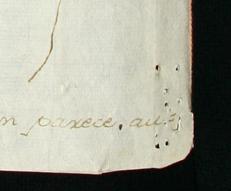 n parece. au=